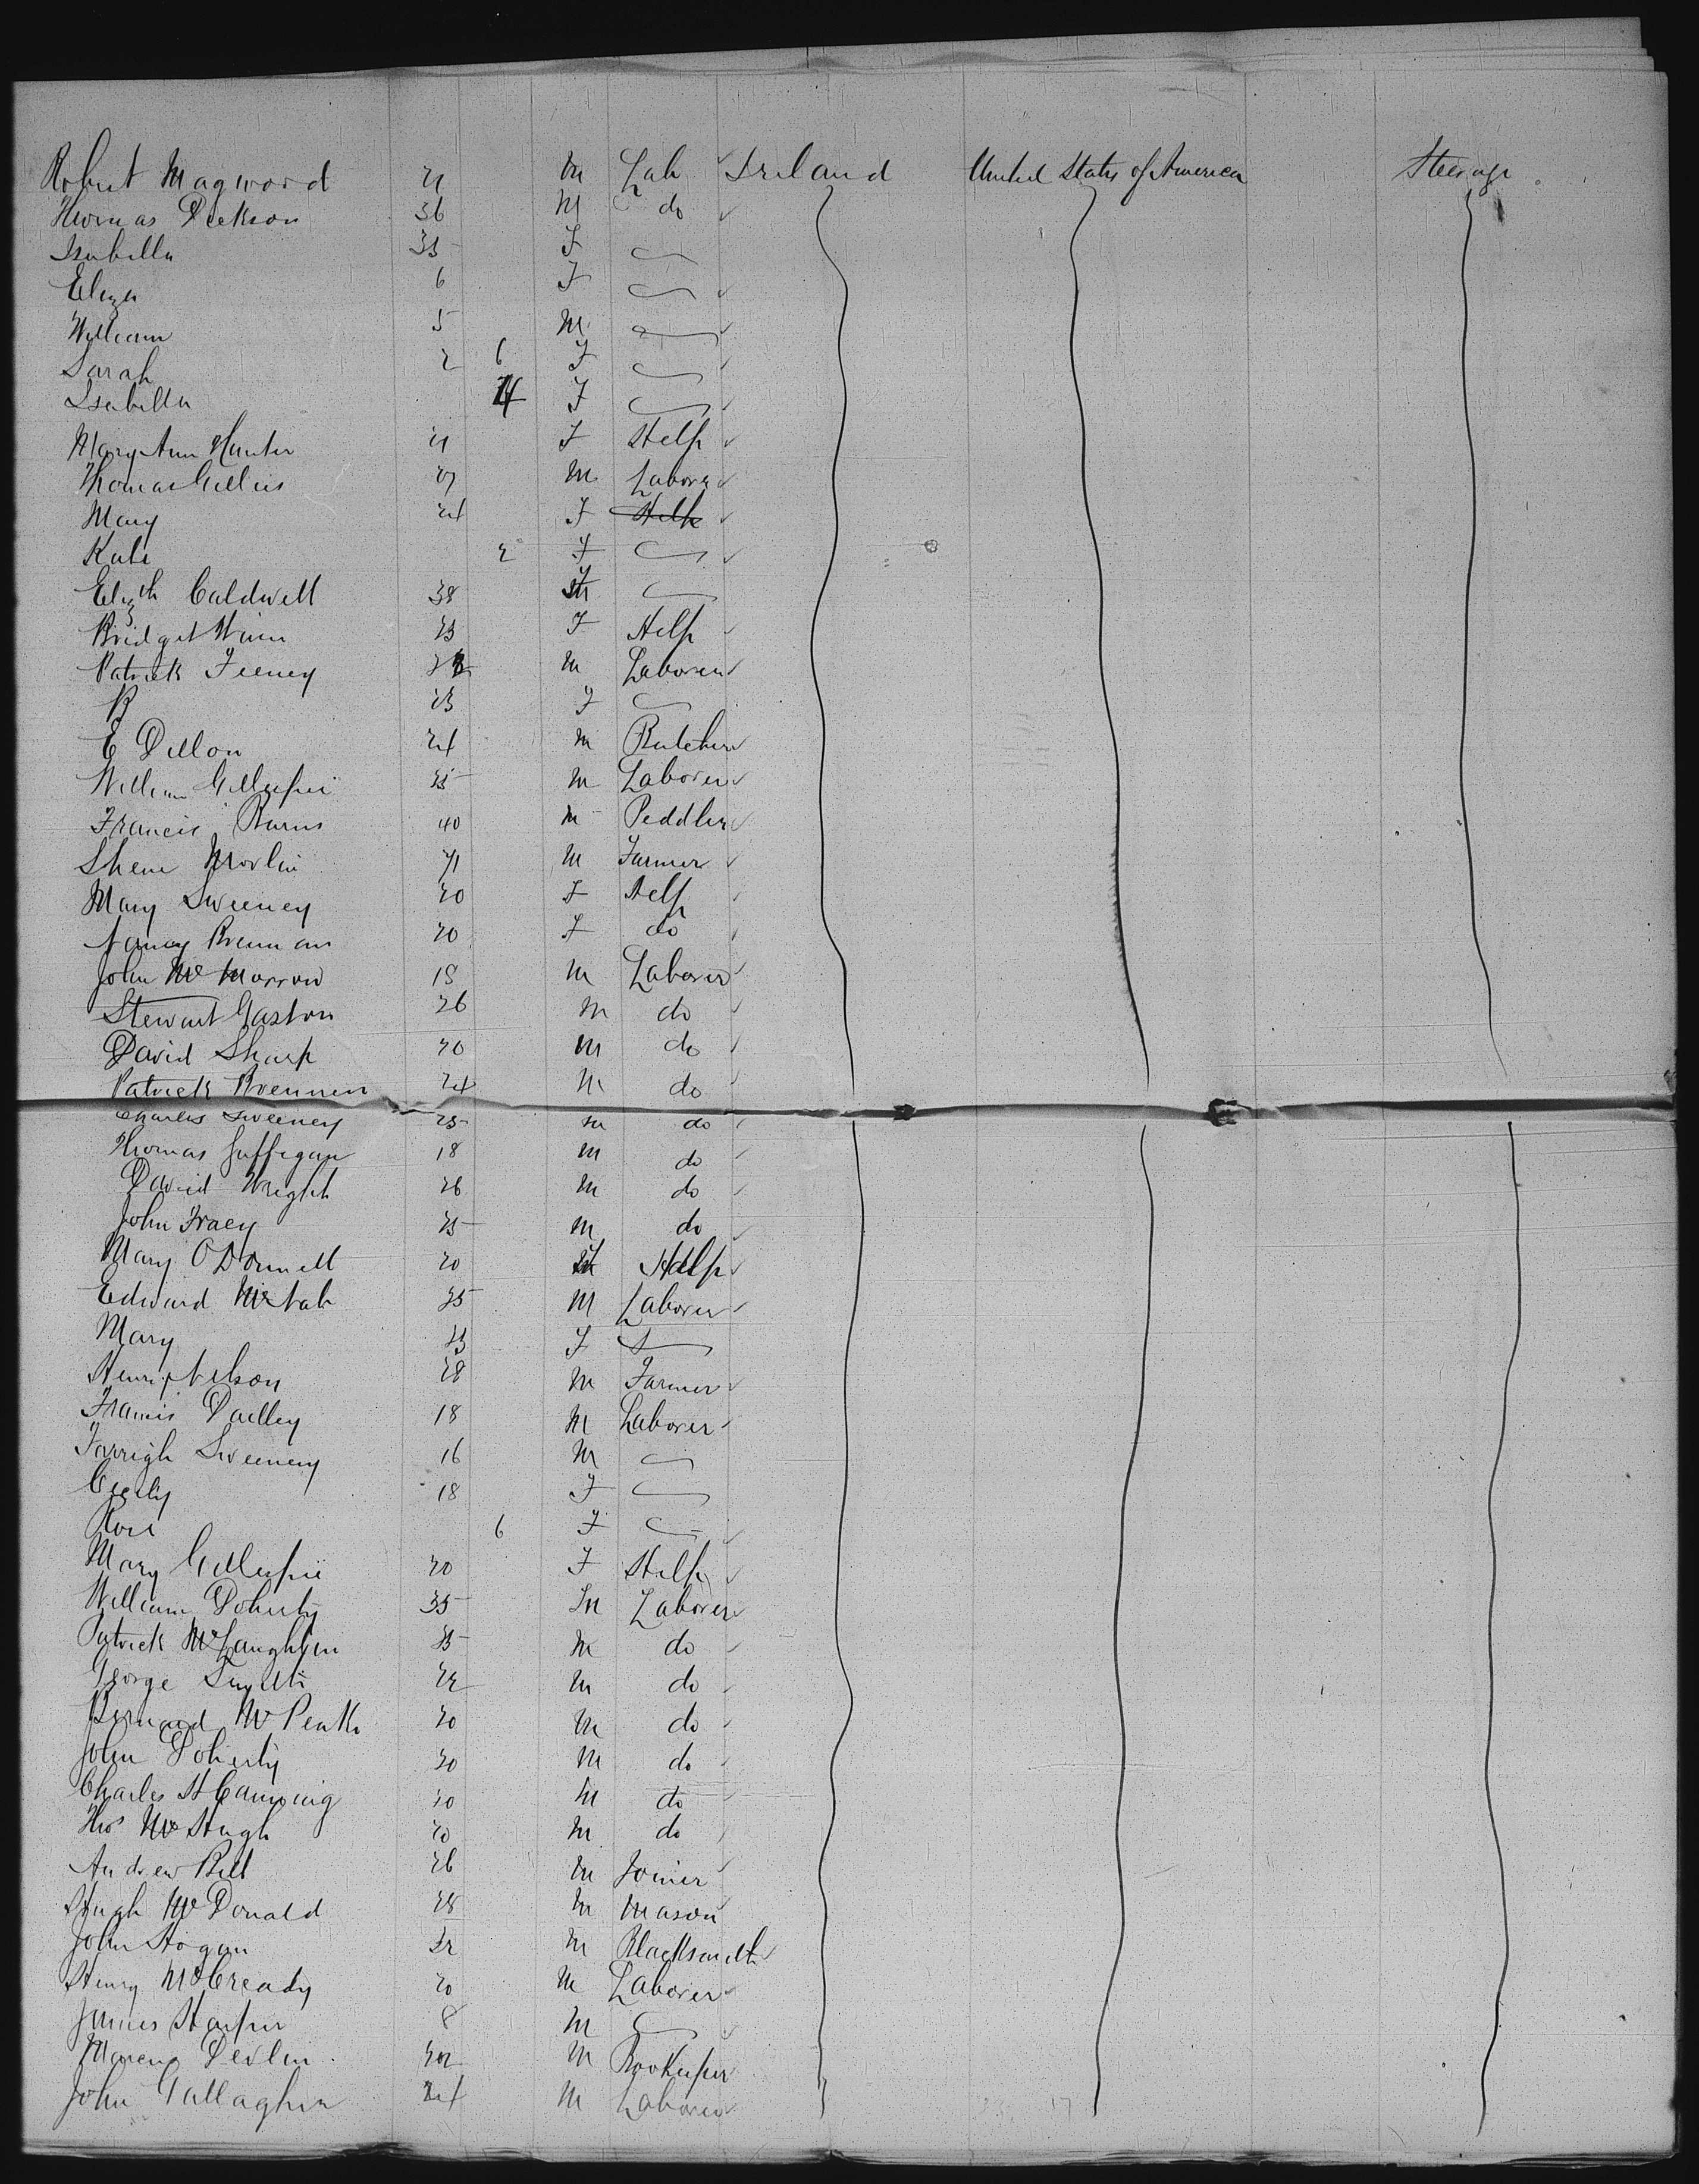 Robert Magwood 21 M Lab Ireland United States of America Steerage
Thomas Dickson 36 M do
Isabella 35 F
Eliza 6 F
William 5 M
Sarah 2 6 F
Isabella 4 F
Mary Ann Hunter 21 F Help
Thomas Gillies 27 M Laborer
Mary 24 F Help
Kate 2 F
Elizth Caldwell 38 F
Bridget 23 F Help
Patrick Feeney M Laborer
B 23 F
E Dillon 24 M Butcher
William Gillespie 25 M Laborer
Francis Burns 40 M Peddler
M Farmer
Mary Sweeney 20 F Help
Nancy Brennan 20 F do
John McMorrow 18 M Laborer
Stewart Gaston 26 M do
David Sharp 20 M do
Patrick Brennen 24 M do
Charles Sweeney 25 M do
Thomas 18 M do
David Wright 26 M do
John Tracy 25 M do
Mary ODonnell 20 F Help
Edward McNab 25 M Laborer
Mary 23 F
Henry Nelson 28 M Farmer
Francis Dailley 18 M Laborer
Farrigh Sweeney 16 M
Cicily 18 F
Rose 6 F
Mary Gillespie 20 F Help
William Doherty 35 M Laborer
Patrick McLaughlin 25 M do
George 22 M do
Bernard McPeake 20 M do
John Doherty 20 M do
Charles H Canning 20 M do
Thos McHugh 20 M do
Andrew Bell 26 M Joiner
Hugh McDonald 28 M Mason
John Hogan 22 M Blacksmith
Henry McCready 20 M Laborer
James Harper 8 M
Devlin M Bookeeper
John Gallagher 24 M Laborer